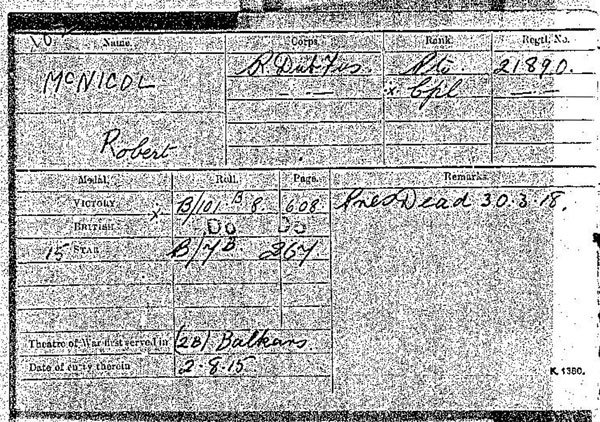 Name. Corps. Rank. Regtl. No.
McNICOL R. Dub. Fus. Pte 21890.
— " — x Cpl — " —
Robert
Medal. Roll. Page. Remarks.
VICTORY x B/101 B 8. 608 Pres Dead 30.3.18.
BRITISH Do Do
15 STAR B/7 B 267.
Theatre of War first served in (2B) Balkans
Date of entry therein 2.8.15
K. 1380.